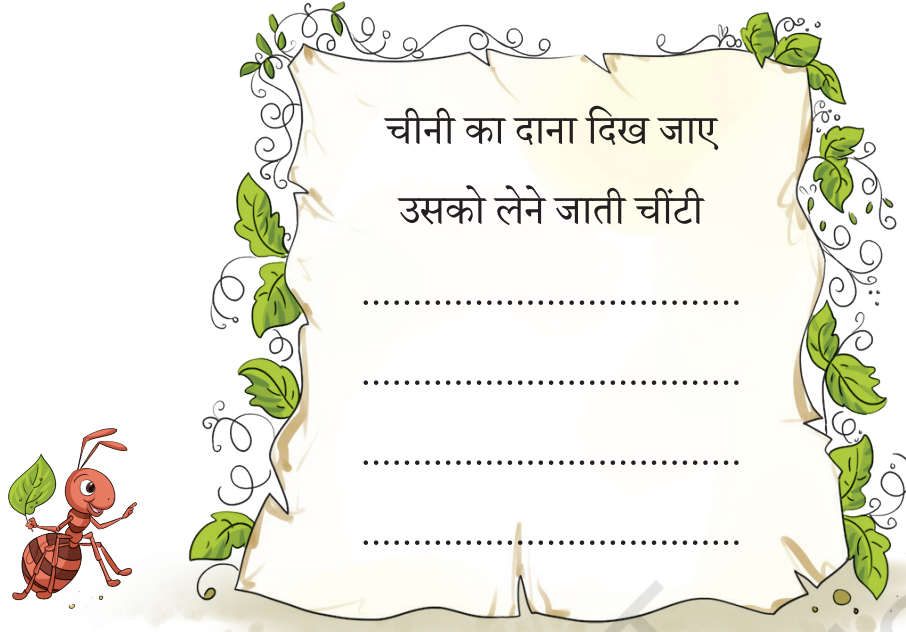 चीनी का दाना दिख जाए
उसको लेने जाती चींटी
........................................
........................................
........................................
........................................